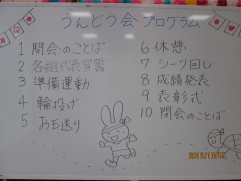 うんどう会 プログラム
1 開会のことば
2 各組代表宣誓
3 準備運動
4 輪投げ
5 お玉送り
6 休憩
7 シーツ回し
8 成績発表
9 表彰式
10 閉会のことば